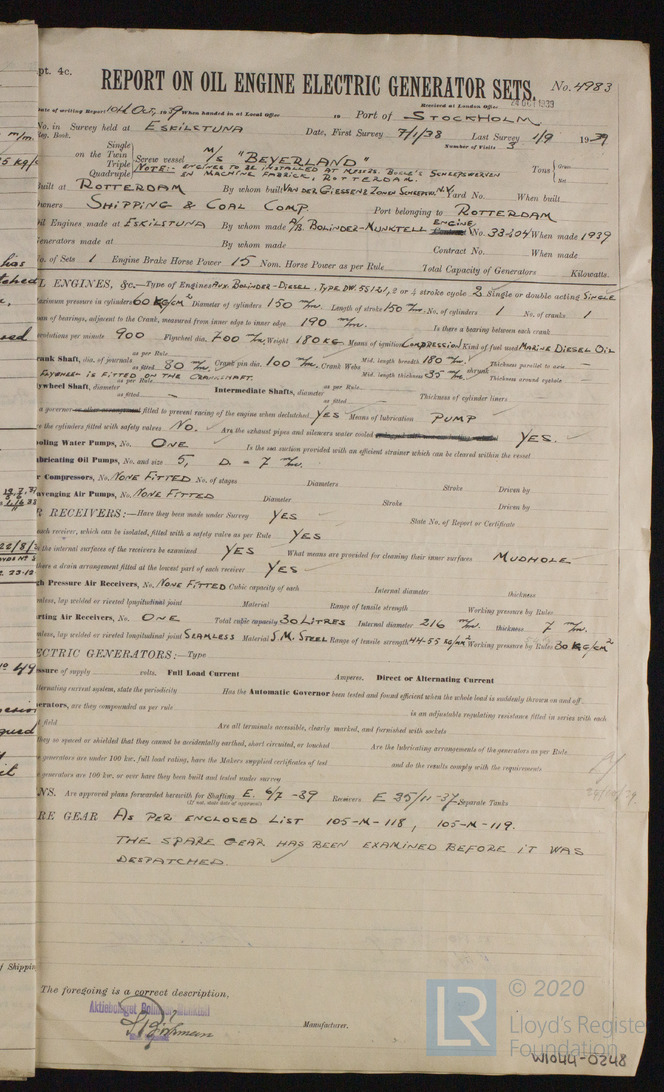 pt. 4c.
REPORT ON OIL ENGINE ELECTRIC GENERATOR SETS. No. 4983
Received at London Office 24 OCT 1939
Date of writing Report 10th Oct. 1939 When handed in at Local Office 19 Port of STOCKHOLM
No. in Survey held at ESKILSTUNA Date, First Survey 7/1/38 Last Survey 1/9 1939
Reg. Book. Number of Visits 3
on the Single Twin Triple Quadruple Screw vessel M/S "BEYERLAND" Tons Gross Net
NOTE:- ENGINES TO BE INSTALLED AT MESSRS. SCHEEPSWERVEN
EN MACHINE FABRIEK, ROTTERDAM.
Built at ROTTERDAM By whom built VAN DER GIESSEN & ZONEN SCHEEPSW. N.V. Yard No. When built
Owners SHIPPING & COAL COMP Port belonging to ROTTERDAM
Oil Engines made at ESKILSTUNA By whom made A/B. BOLINDER-MUNKTELL ENGINE No. 33304 When made 1939
Generators made at By whom made Contract No. When made
No. of Sets 1 Engine Brake Horse Power 15 Nom. Horse Power as per Rule Total Capacity of Generators Kilowatts.
IL ENGINES, &c.—Type of Engines AUX. BOLINDER-DIESEL, TYPE DW. 2 or 4 stroke cycle 2 Single or double acting SINGLE
Maximum pressure in cylinders 60 KG/CM² Diameter of cylinders 150 m/m. Length of stroke 150 m/m. No. of cylinders 1 No. of cranks 1
Span of bearings, adjacent to the Crank, measured from inner edge to inner edge 190 m/m. Is there a bearing between each crank
Revolutions per minute 900 Flywheel dia. 700 m/m. Weight 180 KG Means of ignition COMPRESSION Kind of fuel used MARINE DIESEL OIL
Crank Shaft, dia. of journals as per Rule as fitted 80 m/m. Crank pin dia. 100 m/m. Crank Webs Mid. length breadth 180 m/m. Mid. length thickness 35 m/m. shrunk Thickness parallel to axis Thickness around eyehole
FLYWHEEL IS FITTED ON THE CRANKSHAFT.
Flywheel Shaft, diameter as per Rule as fitted Intermediate Shafts, diameter as per Rule as fitted Thickness of cylinder liners
a governor or other arrangement fitted to prevent racing of the engine when declutched YES Means of lubrication PUMP
Are the cylinders fitted with safety valves NO. Are the exhaust pipes and silencers water cooled YES.
Cooling Water Pumps, No. ONE Is the sea suction provided with an efficient strainer which can be cleared within the vessel
Lubricating Oil Pumps, No. and size 5, D = 7 m/m.
r Compressors, No. NONE FITTED No. of stages Diameters Stroke Driven by
cavenging Air Pumps, No. NONE FITTED Diameter Stroke Driven by
R RECEIVERS:—Have they been made under Survey YES State No. of Report or Certificate
each receiver, which can be isolated, fitted with a safety valve as per Rule YES
the internal surfaces of the receivers be examined YES What means are provided for cleaning their inner surfaces MUDHOLE
there a drain arrangement fitted at the lowest part of each receiver YES
gh Pressure Air Receivers, No. NONE FITTED Cubic capacity of each Internal diameter thickness
amless, lap welded or riveted longitudinal joint Material Range of tensile strength Working pressure by Rules
arting Air Receivers, No. ONE Total cubic capacity 30 LITRES Internal diameter 216 m/m. thickness 7 m/m.
amless, lap welded or riveted longitudinal joint SEAMLESS Material S.M. STEEL Range of tensile strength 44-55 KG/mm² Working pressure by Rules 30 KG/CM²
ECTRIC GENERATORS:—Type
ssure of supply volts. Full Load Current Amperes. Direct or Alternating Current
alternating current system, state the periodicity Has the Automatic Governor been tested and found efficient when the whole load is suddenly thrown on and off
nerators, are they compounded as per rule is an adjustable regulating resistance fitted in series with each
t field Are all terminals accessible, clearly marked, and furnished with sockets
they so spaced or shielded that they cannot be accidentally earthed, short circuited, or touched Are the lubricating arrangements of the generators as per Rule
e generators are under 100 kw. full load rating, have the Makers supplied certificates of test and do the results comply with the requirements
e generators are 100 kw. or over have they been built and tested under survey
NS. Are approved plans forwarded herewith for Shafting E. 6/7 -39 Receivers E 25/11-37 Separate Tanks
(If not, state date of approval)
RE GEAR AS PER ENCLOSED LIST 105-M-118, 105-M-119.
THE SPARE GEAR HAS BEEN EXAMINED BEFORE IT WAS
DESPATCHED.
The foregoing is a correct description,
Aktiebolaget Bolinder-Munktell
Manufacturer.
LR
© 2020
Lloyd's Register
Foundation
W1044-0248